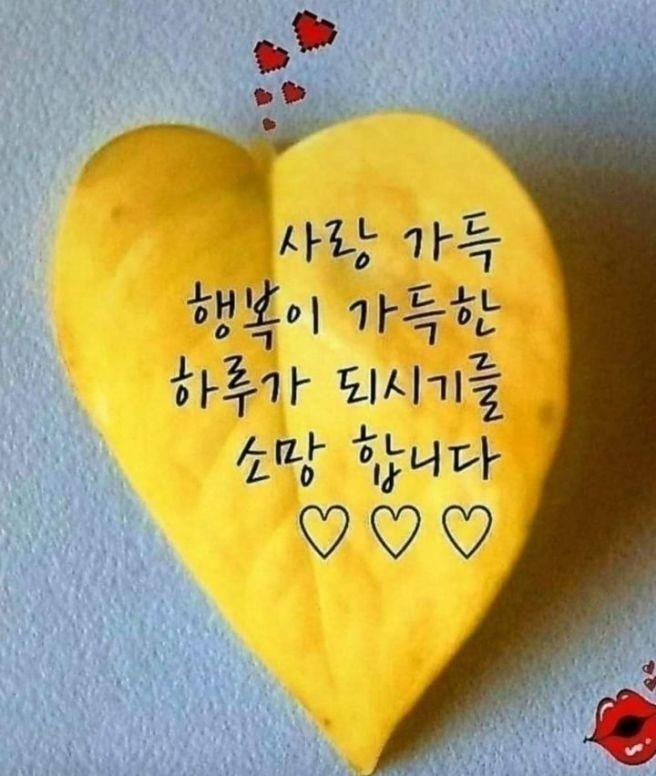 사랑 가득
행복이 가득한
하루가 되시기를
소망 합니다
♡ ♡ ♡